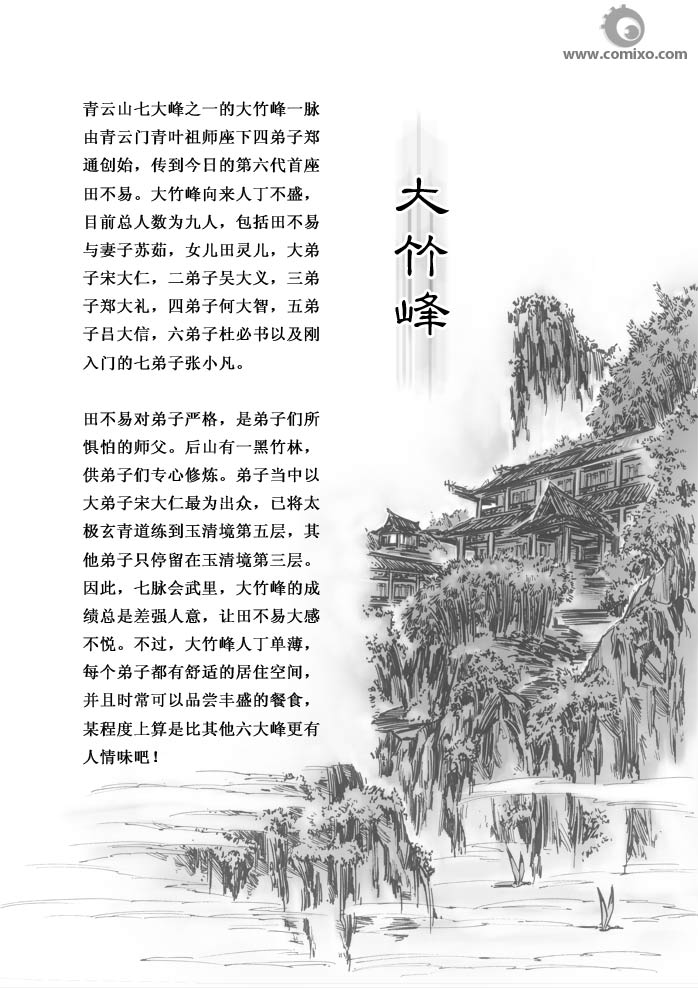 www.comixo.com
大竹峰
青云山七大峰之一的大竹峰一脉
由青云门青叶祖师座下四弟子郑
通创始，传到今日的第六代首座
田不易。大竹峰向来人丁不盛，
目前总人数为九人，包括田不易
与妻子苏茹，女儿田灵儿，大弟
子宋大仁，二弟子吴大义，三弟
子郑大礼，四弟子何大智，五弟
子吕大信，六弟子杜必书以及刚
入门的七弟子张小凡。
田不易对弟子严格，是弟子们所
惧怕的师父。后山有一黑竹林，
供弟子们专心修炼。弟子当中以
大弟子宋大仁最为出众，已将太
极玄青道练到玉清境第五层，其
他弟子只停留在玉清境第三层。
因此，七脉会武里，大竹峰的成
绩总是差强人意，让田不易大感
不悦。不过，大竹峰人丁单薄，
每个弟子都有舒适的居住空间，
并且时常可以品尝丰盛的餐食，
某程度上算是比其他六大峰更有
人情味吧！